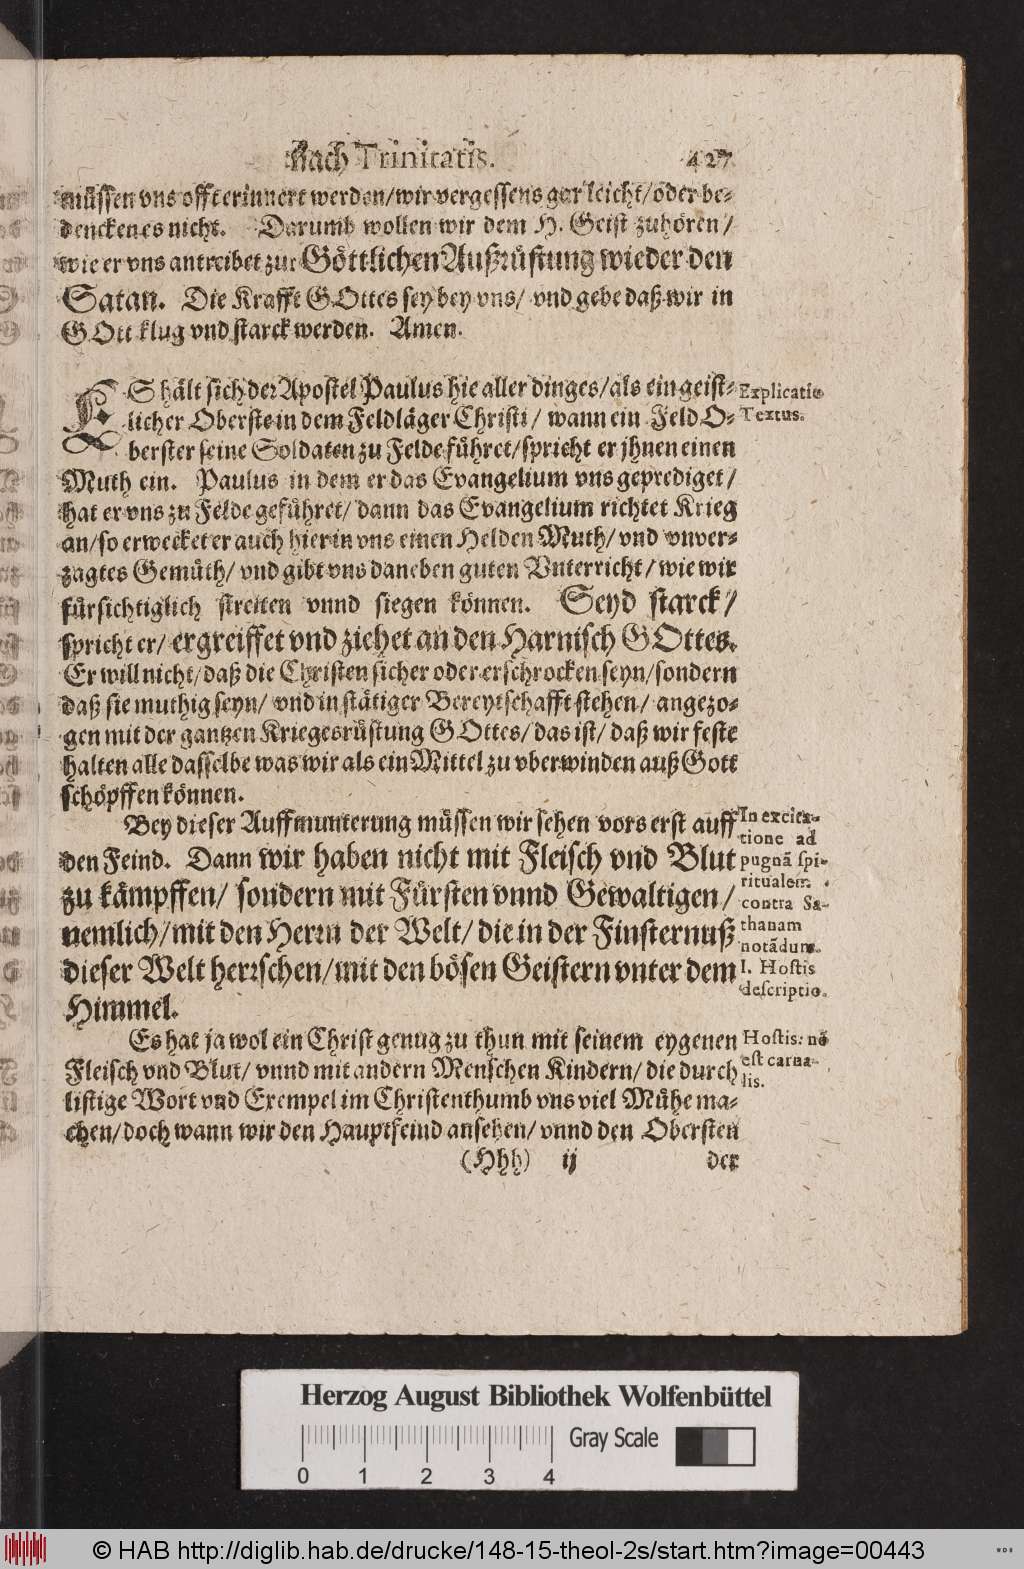 nach Trinitatis. 427
müssen vns offt erinnert werden/ wir vergessens gar leicht/ oder be-
denckenes nicht. Darumb wollen wir dem H. Geist zuhören/
wie er vns antreibet zur Göttlichen Außrüstung wieder den
Satan. Die Krafft GOttes sey bey vns/ vnd gebe daß wir in
GOtt klug vnd starck werden. Amen.
ES hält sich der Apostel Paulus hie aller dinges/ als ein geist-
licher Oberste in dem Feldläger Christi/ wann ein Feld O-
berster seine Soldaten zu Felde führet/ spricht er jhnen einen
Muth ein. Paulus in dem er das Evangelium vns geprediget/
hat er vns zu Felde geführet/ dann das Evangelium richtet Krieg
an/ so erwecket er auch hierin vns einen Helden Muth/ vnd vnver-
zagtes Gemüth/ vnd gibt vns daneben guten Vnterricht/ wie wir
fürsichtiglich streiten vnnd siegen können. Seyd starck/
spricht er/ ergreiffet vnd ziehet an den Harnisch GOttes.
Er will nicht/ daß die Christen sicher oder erschrocken seyn/ sondern
daß sie muthig seyn/ vnd in stätiger Bereytschafft stehen/ angezo-
gen mit der gantzen Kriegesrüstung GOttes/ das ist/ daß wir feste
halten alle dasselbe was wir als ein Mittel zu vberwinden auß Gott
schöpffen können.
Explicatio
Textus.
Bey dieser Auffmunterung müssen wir sehen vors erst auff
den Feind. Dann wir haben nicht mit Fleisch vnd Blut
zu kämpffen/ sondern mit Fürsten vnnd Gewaltigen/
nemlich/ mit den Herrn der Welt/ die in der Finsternuß
dieser Welt herrschen/ mit den bösen Geistern vnter dem
Himmel.
In excita-
tione ad
pugnã spi-
ritualem
contra Sa-
thanam
notãdum.
I. Hostis
descriptio.
Es hat ja wol ein Christ genug zu thun mit seinem eygenen
Fleisch vnd Blut/ vnnd mit andern Menschen Kindern/ die durch
listige Wort vnd Exempel im Christenthumb vns viel Mühe ma-
chen/ doch wann wir den Hauptfeind ansehen/ vnnd den Obersten
Hostis: nõ
est carna-
lis.
(Hhh) ij der
Herzog August Bibliothek Wolfenbüttel
0 1 2 3 4 Gray Scale
© HAB http://diglib.hab.de/drucke/148-15-theol-2s/start.htm?image=00443